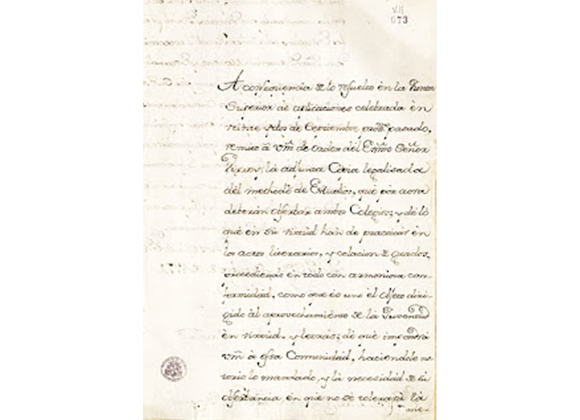 VII
073
A consequencia de lo resuelto en la Junta
Superior de aplicaciones celebrada en
veinte y dos de Septiembre pasado,
remito à Vm̃ de orden del Exm̃o Señor
Virrey, la adjunta Copia legalisada
del methodo de Estudios, que por aora
deberán observar ambos Colegios; y de lo
que en su virtud han de practicar en
los actos literarios, y colacion de grados,
procediendo en todo con armoniosa con
formidad, como que es uno el objeto diri
gido al aprovechamiento de la Juventud
en virtud, y letras; de que impondrá
Vm̃ à essa Comunidad, haciendole no
torio lo mandado, y la necesidad de su
observancia, en que no se tolerará la
me-